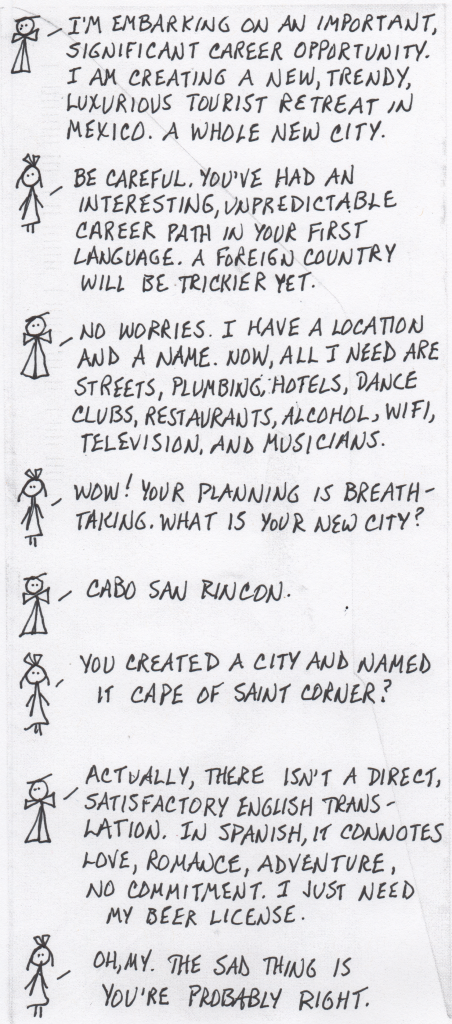 I'M EMBARKING ON AN IMPORTANT,
SIGNIFICANT CAREER OPPORTUNITY.
I AM CREATING A NEW, TRENDY,
LUXURIOUS TOURIST RETREAT IN
MEXICO. A WHOLE NEW CITY.
BE CAREFUL. YOU'VE HAD AN
INTERESTING, UNPREDICTABLE
CAREER PATH IN YOUR FIRST
LANGUAGE. A FOREIGN COUNTRY
WILL BE TRICKIER YET.
NO WORRIES. I HAVE A LOCATION
AND A NAME. NOW, ALL I NEED ARE
STREETS, PLUMBING, HOTELS, DANCE
CLUBS, RESTAURANTS, ALCOHOL, WIFI,
TELEVISION, AND MUSICIANS.
WOW! YOUR PLANNING IS BREATH-
TAKING. WHAT IS YOUR NEW CITY?
CABO SAN RINCON.
YOU CREATED A CITY AND NAMED
IT CAPE OF SAINT CORNER?
ACTUALLY, THERE ISN'T A DIRECT,
SATISFACTORY ENGLISH TRANS-
LATION. IN SPANISH, IT CONNOTES
LOVE, ROMANCE, ADVENTURE,
NO COMMITMENT. I JUST NEED
MY BEER LICENSE.
OH, MY. THE SAD THING IS
YOU'RE PROBABLY RIGHT.